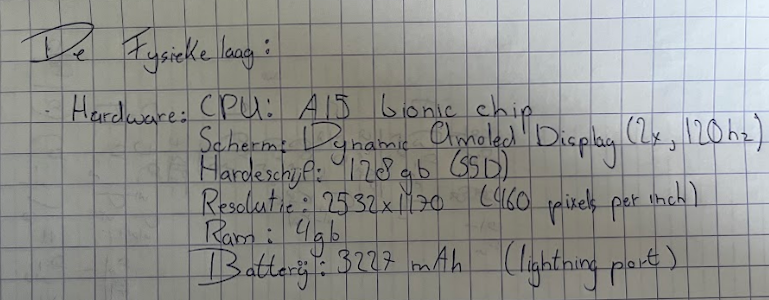 De Fysieke laag:
Hardware: CPU: A15 bionic chip
Scherm: Dynamic Amoled Display (2x, 120hz)
Hardeschijf: 128gb (SSD)
Resolutie: 2532x1170 (460 pixels per inch)
Ram: 4gb
Batterij: 3227 mAh (lightning port)